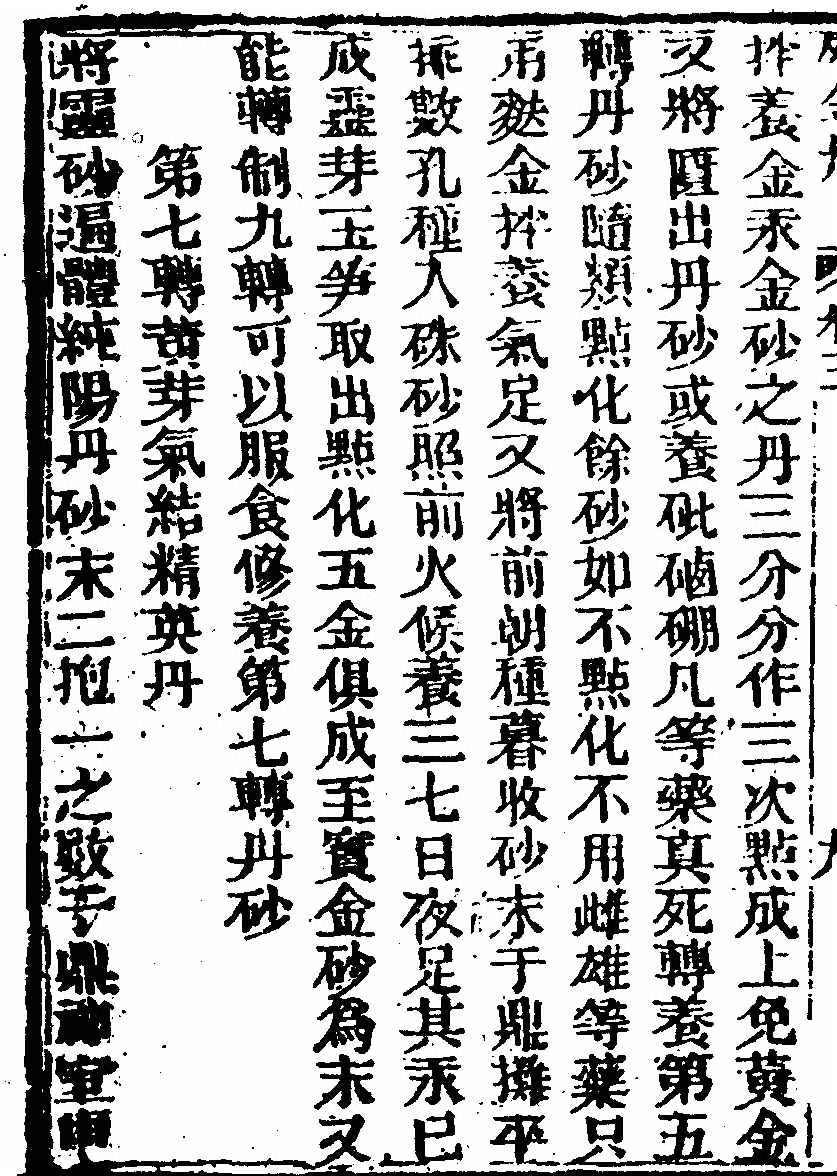 拌養金汞金砂之丹三分分作三次點成上色黃金
又將匱出丹砂或養砒硇硼凡等藥真死轉養第五
轉丹砂隨類點化餘砂如不點化不用雌雄等藥只
用麩金拌養氣足又將前朝種暮收砂末于鼎攤平
振數孔種入硃砂照前火候養三七日夜足其汞已
成靈芽玉笋取出點化五金俱成至寳金砂為末又
能轉制九轉可以服食修養第七轉丹砂
第七轉黄芽氣結精英丹
將靈砂逼體純陽丹砂末二抱一之數于鼎神室中